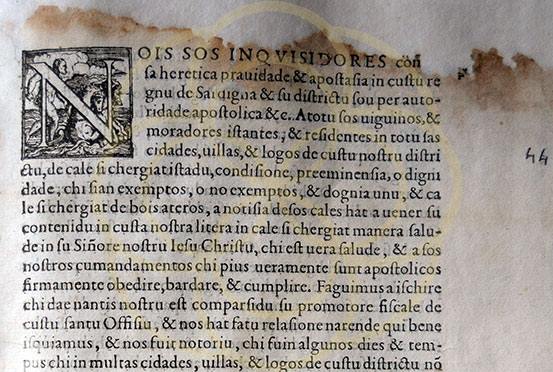 NOIS SOS INQVISIDORES cōn
sa heretica prauidade & apostasia in custu re
gnu de Sardigna & su districtu sou per auto-
ridade apostolica &c. A totu sos uiguinos, &
moradores istantes, & residentes in totu sas
cidades, uillas, & logos de custu nostru distri
ctu, de cale si chergiat istadu, condisione, preeminensia, o digni
dade, chi sian exemptos, o no exemptos, & dognia unu, & ca
le si chergiat de bois ateros, a notisia de sos cales hat a uener su
contenidu in custa nostra litera in cale si chergiat manera salu-
de in su Siñore nostru Iesu Christu, chi est uera salude, & a sos
nostros cumandamentos chi pius ueramente sunt apostolicos
firmamente obedire, bardare, & cumplire. Faguimus a ischire
chi dae nantis nostru est comparsidu su promotore fiscale de
custu santu Offisiu, & nos hat fatu relasione narende qui bene
isquiamus, & nos fuit notoriu, chi fuin algunos dies & tem-
pus chi in multas cidades, uillas, & logos de custu districtu nō
44